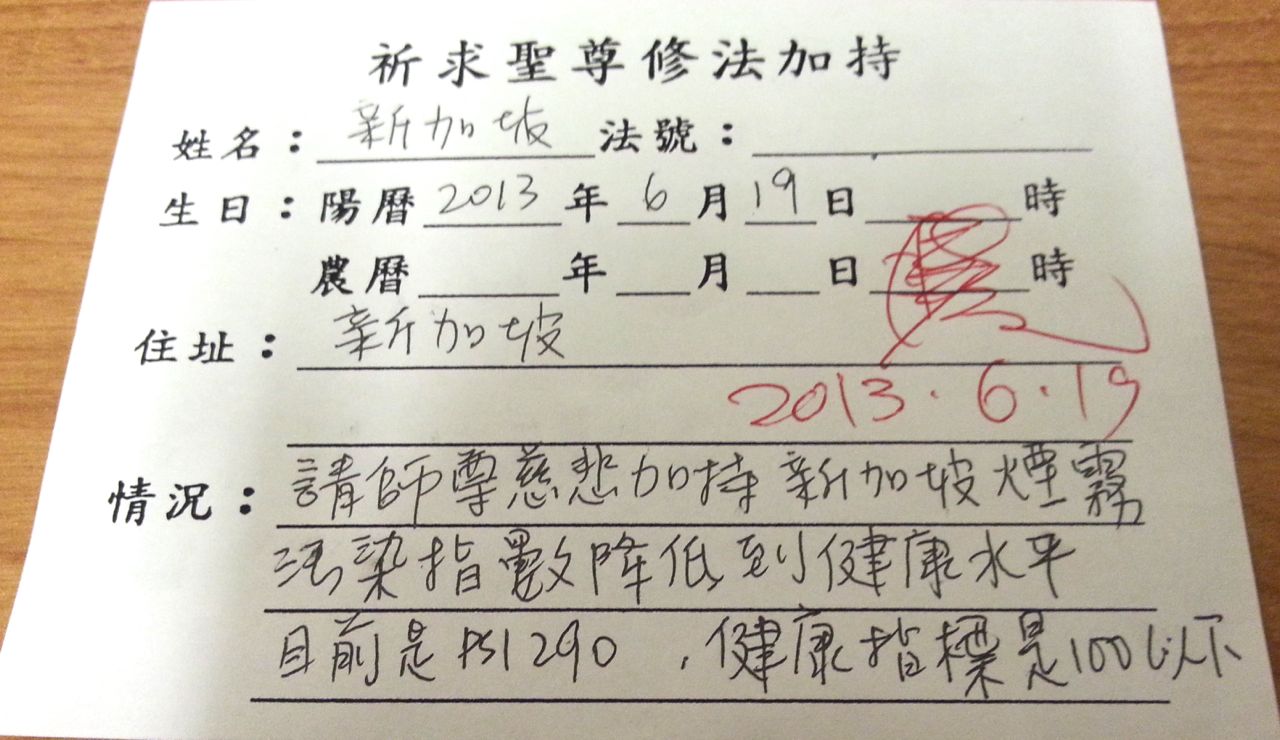 祈求聖尊修法加持
姓名：新加坡 法號：
生日：陽曆 2013 年 6 月 19 日 時
農曆 年 月 日 時
住址：新加坡
2013.6.19
情況：請師尊慈悲加持新加坡煙霧
污染指數降低到健康水平
目前是 PSI 290 ，健康指標是100以下